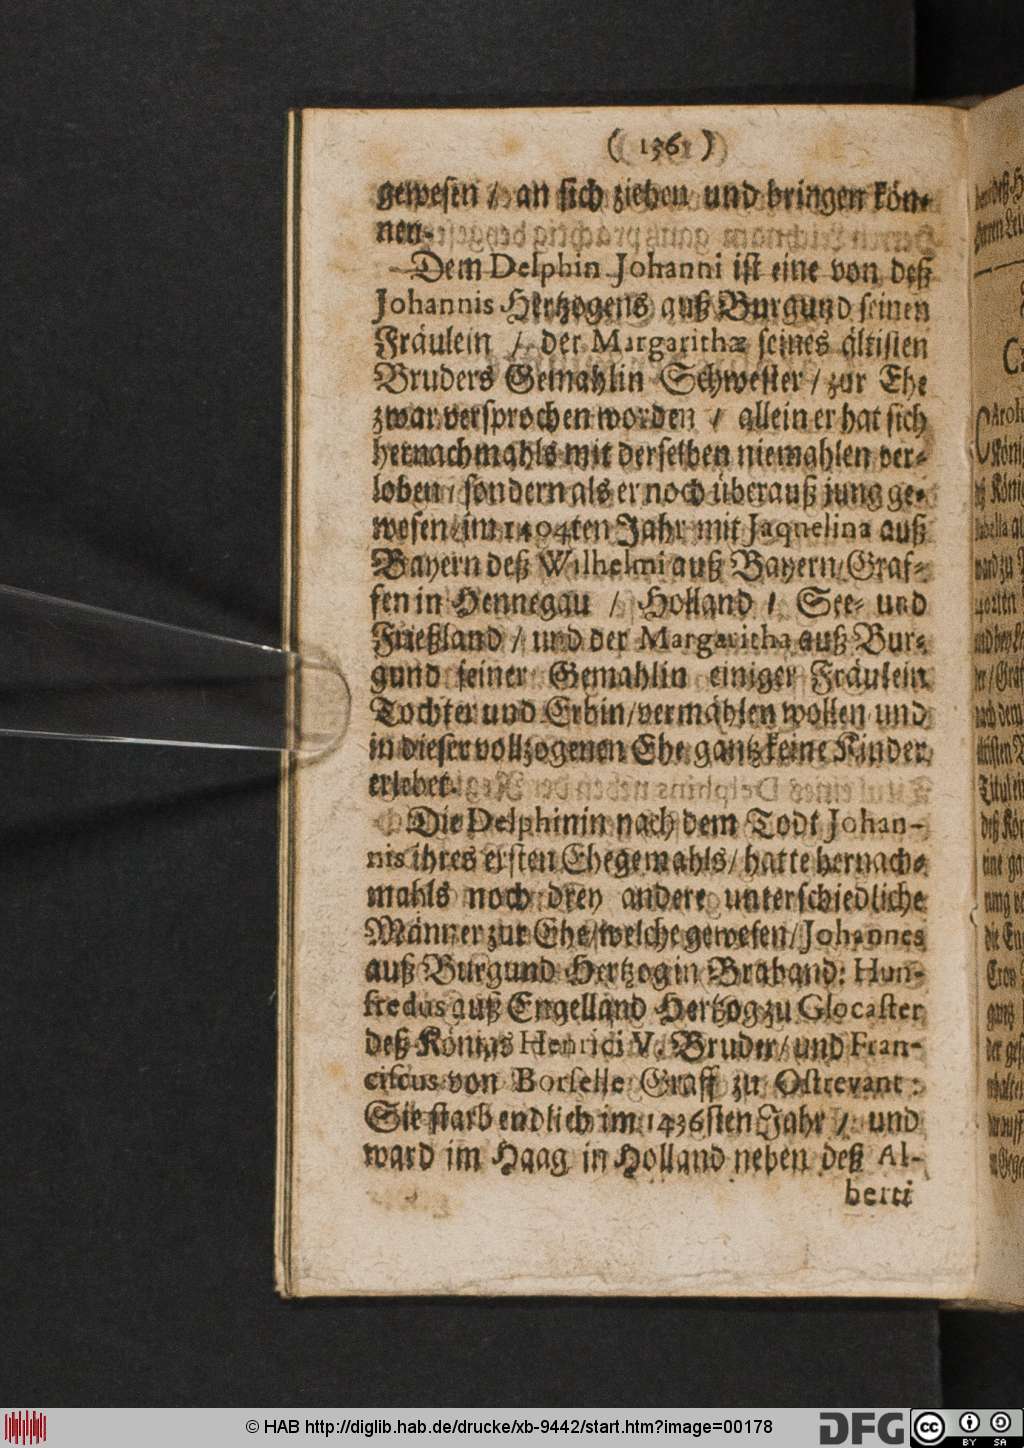 ( 136 )
gewesen / an sich ziehen und bringen kön-
nen.
Dem Delphin Johanni ist eine von deß
Johannis Hertzogens auß Burgund seinen
Fräulein / der Margarithæ seines ältisten
Bruders Gemahlin Schwester / zur Ehe
zwar versprochen worden / allein er hat sich
hernachmahls mit derselben niemahlen ver-
loben / sondern als er noch überauß jung ge-
wesen im 1404ten Jahr mit Jaquelina auß
Bayern deß Wilhelmi auß Bayern / Graf-
fen in Hennegau / Holland / See- und
Frießland / und der Margaritha auß Bur-
gund seiner Gemahlin einiger Fräulein
Tochter und Erbin / vermählen wollen und
in dieser vollzogenen Ehe gantz keine Kinder
erlebet.
Die Delphinin nach dem Todt Johan-
nis ihres ersten Ehegemahls / hatte hernach-
mahls noch drey andere unterschiedliche
Männer zur Ehe / welche gewesen / Johannes
auß Burgund Hertzog in Braband: Hun-
fredus auß Engelland Hertzog zu Glocaster
deß Königs Henrici V. Bruder / und Fran-
ciscus von Borselle Graff zu Ostrevant:
Sie starb endlich im 1436sten Jahr / und
ward im Haag in Holland neben deß Al-
berti
© HAB http://diglib.hab.de/drucke/xb-9442/start.htm?image=00178
DFG
cc BY SA